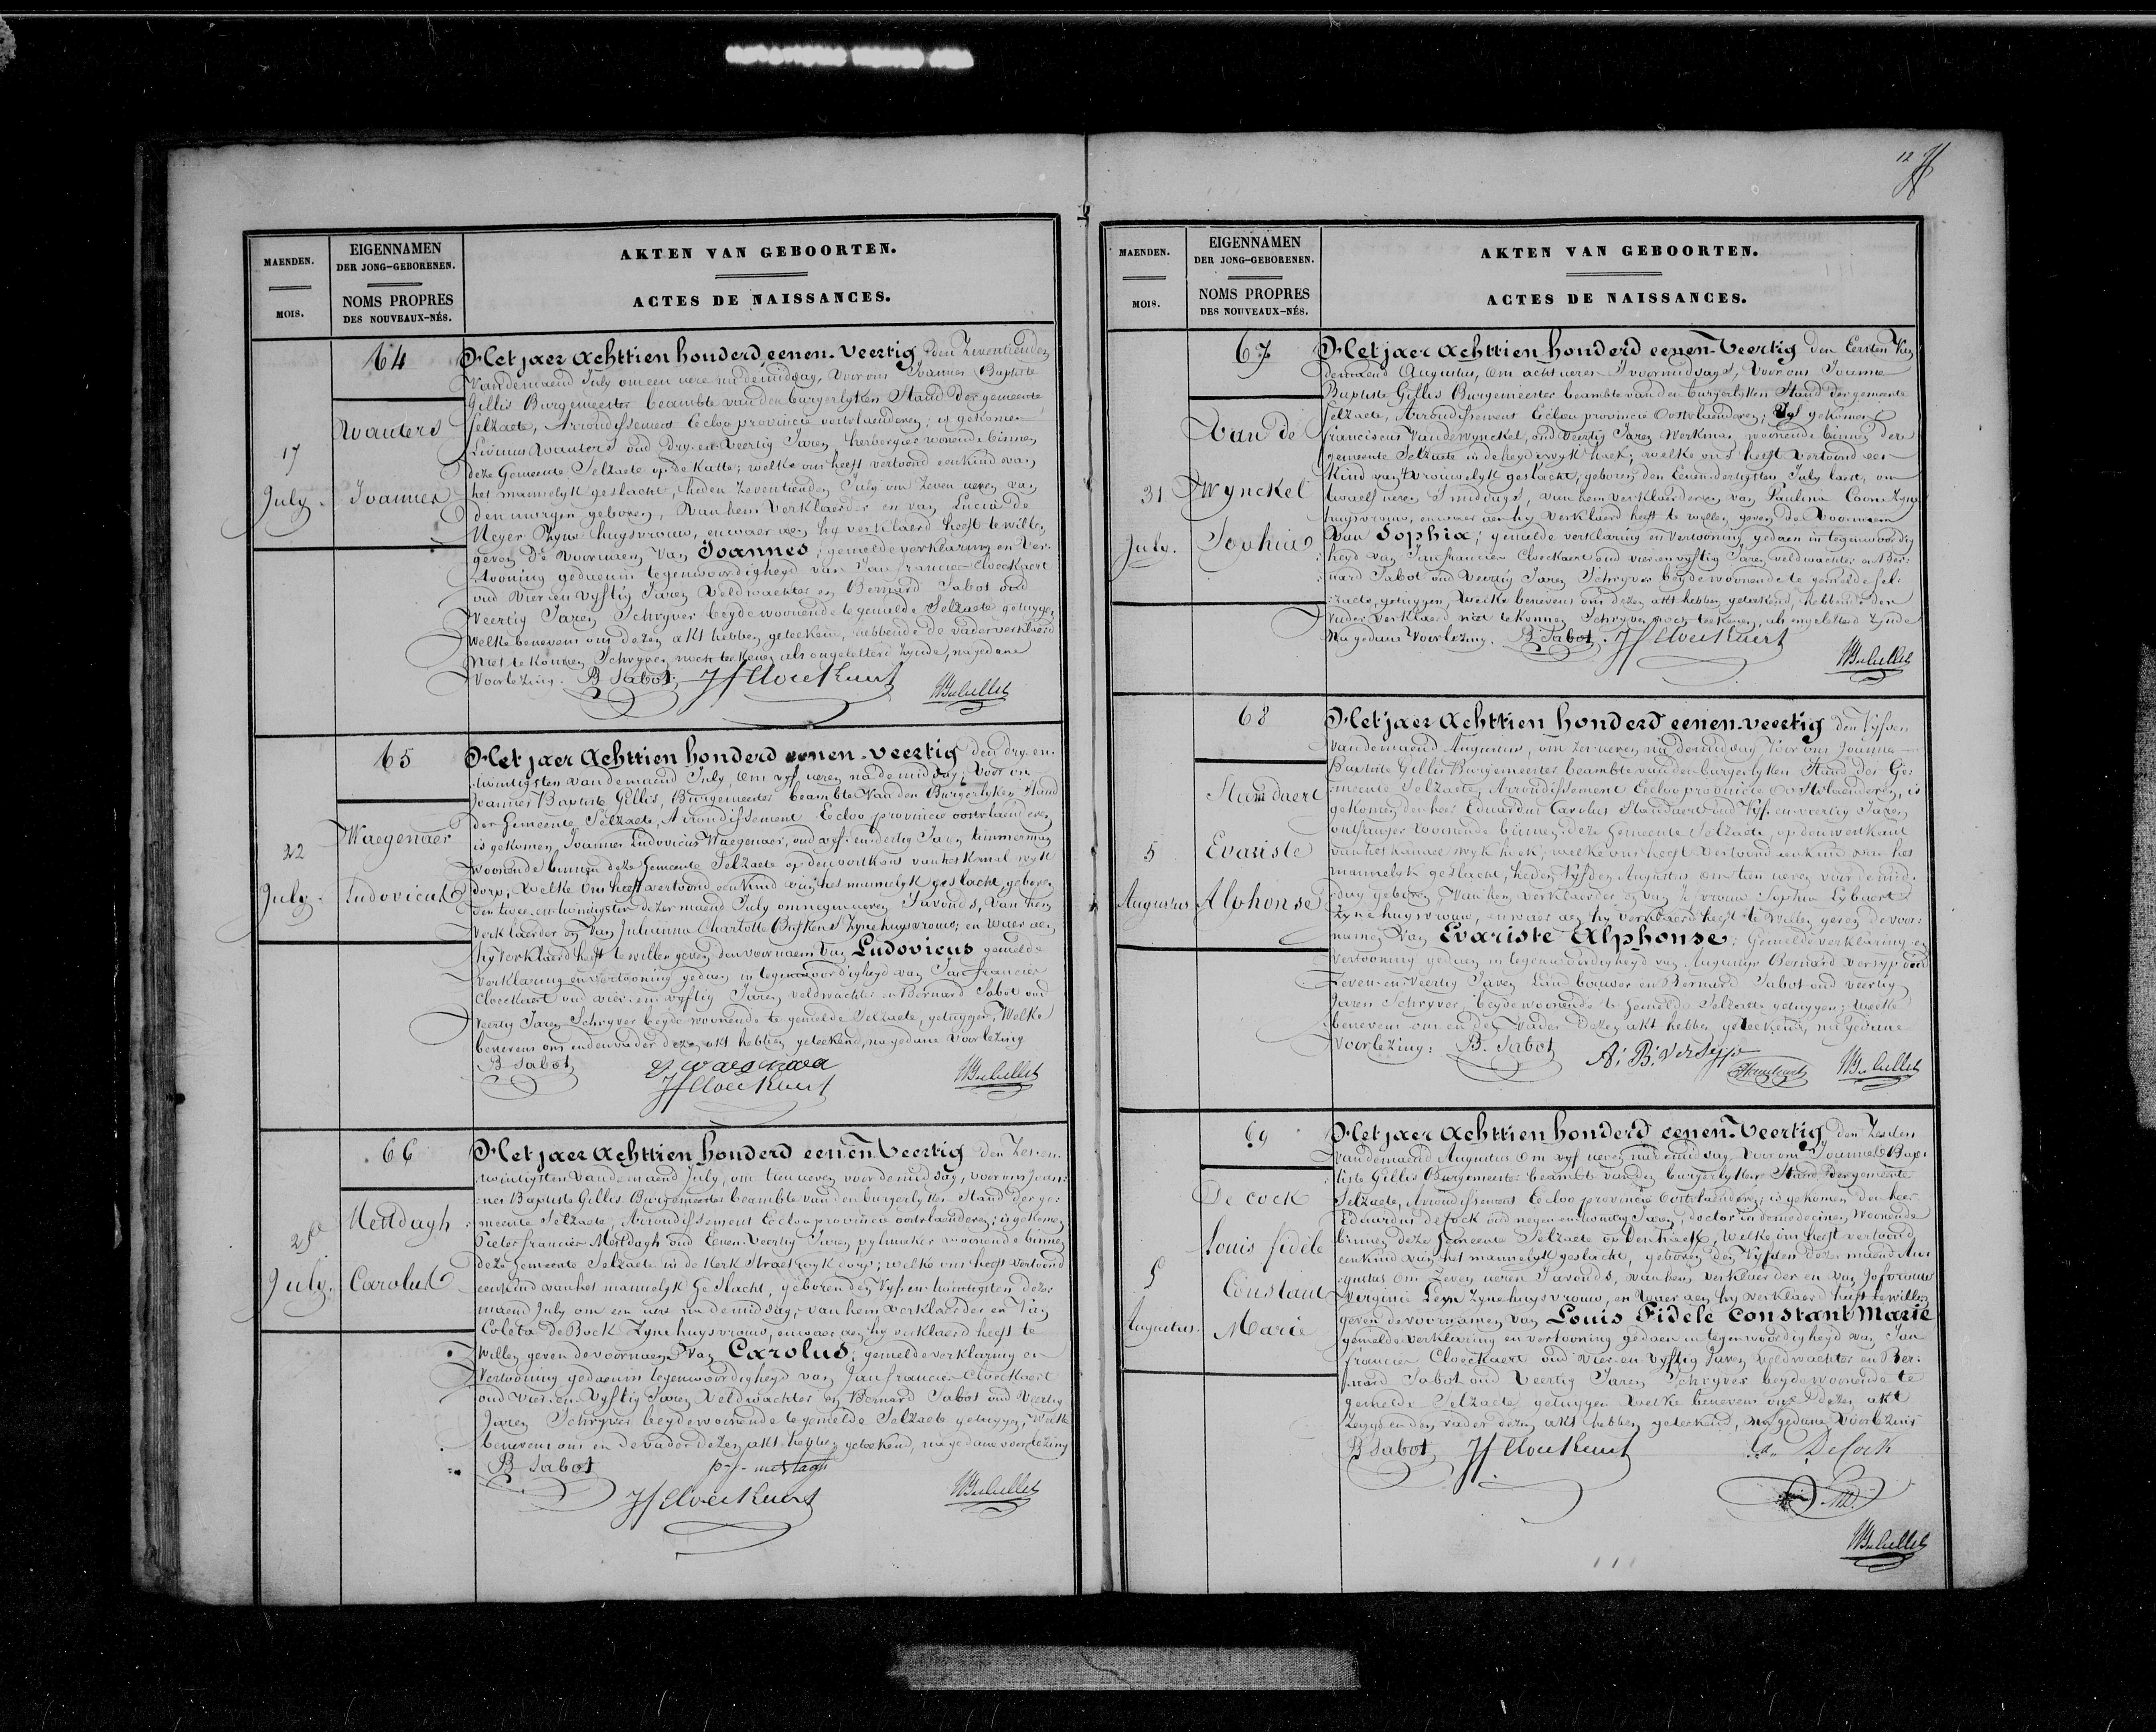 12
MAENDEN.
MOIS.
EIGENNAMEN
DER JONG-GEBORENEN.
NOMS PROPRES
DES NOUVEAUX-NÉS.
AKTEN VAN GEBOORTEN.
ACTES DE NAISSANCES.
64
Wauters
17
July.
Joannes
Het jaer achttien honderd eenen-veertig, den zeventienden
van de maend July om een uere na demiddag, voor ons Joannes Baptiste
Gillis Burgemeester beambte van den burgerlyken Stand der gemeente
Selzaete, Arrondissement Eecloo provincie oostvlaenderen; is gekomen
Livinus Wauters oud dry-en-veertig Jaren herbergier woonende binnen
deze Gemeente Selzaete op de Katte; welke ons heeft vertoond een kind van
het mannelyk geslacht, heden zeventienden July om zeven ueren van
den morgen geboren, van hem verklaerder en van Lucia de
Meyer zyne huysvrouw, en waer aen hy verklaerd heeft te willen
geven de voornaem van Joannes; gemelde verklaring en ver-
tooning gedaen in tegenwoordigheyd van Jan francies Cloeckaert
oud vier en vyftig Jaren veldwachter en Bernard Sabot oud
veertig Jaren Schryver beyde woonende te gemelde Selzaete getuygen
welke benevens ons dezen akt hebben geteekent, hebbende de vader verklaerd
niet te konnen Schryven noch teekenen als ongeletterd zynde, na gedane
voorlezing. B Sabot JfCloeckaert
65
Waegenaer
22
July.
Ludovicus
Het jaer achttien honderd eenen-veertig den dry-en-
twintigsten van de maend July, om vyf ueren na de middag; voor ons
Joannes Baptiste Gillis, Burgemeester beambte van den Burgerlyken Stand
der Gemeente Selzaete, Arrondissement Eecloo provincie oostvlaenderen
is gekomen Joannes Ludovicus Waegenaer, oud vyf-en-dertig Jaren timmerman
woonende binnen deze Gemeente Selzaete op den oostkant van het kanael wyk
dorp; welke ons heeft vertoond een kind van het mannelyk geslacht, geboren
den twee-en-twintigsten dezer maend July om negen ueren Savonds, van hem
verklaerder en van Julianna Charlotte zyne huysvrouw; en waer aen
hy verklaerd heeft te willen geven den voornaem van Ludovicus gemelde
verklaring en vertooning gedaen in tegenwoordigheyd van Jan francies
Cloeckaert oud vier-en-vyftig Jaren veldwachter en Bernard Sabot oud
veertig Jaren Schryver beyde woonende te gemelde Selzaete, getuygen, welke
benevens ons en den vader dezen akt hebben geteekend, na gedane voorlezing
B Sabot
JfCloeckaert
66
Mettdagh
25
July.
Carolus
Het jaer achttien honderd eenen-veertig den zes-en-
twintigsten van de maend July, om tien ueren voor demiddag, voor ons Joan-
nes Baptiste Gillis Burgemeester beambte van den burgerlyken Stand der ge-
meente Selzaete, Arrondissement Eecloo provincie oostvlaenderen; is gekomen
Pieter francies Mettdagh oud Eenen-veertig Jaren woonende binnen
deze Gemeente Selzaete in de Kerk Straet wyk dorp; welke ons heeft vertoond
een kind van het mannelyk Geslacht, geboren den vyf-en-twintigsten dezer
maend July om een uere na demiddag, van hem verklaerder en van
Coleta De Bock zyne huysvrouw, en waer aen hy verklaerd heeft te
willen geven de voornaem van Carolus; gemelde verklaring en
vertooning gedaen in tegenwoordigheyd van Jan francies Cloeckaert
oud vier-en-vyftig Jaren veldwachter en Bernard Sabot oud veertig
Jaren Schryver beyde woonende te gemelde Selzaete getuygen, welke
benevens ons en de vader dezen akt hebben geteekend, na gedane voorlezing
B Sabot
JfCloeckaert
MAENDEN.
MOIS.
EIGENNAMEN
DER JONG-GEBORENEN.
NOMS PROPRES
DES NOUVEAUX-NÉS.
AKTEN VAN GEBOORTEN.
ACTES DE NAISSANCES.
67
Van de
Wynckel
31
July.
Sophia
Het jaer achttien honderd eenen-veertig den Eersten van
demaend Augustus, om acht ueren Svoormiddags, voor ons Joannes
Baptiste Gillis Burgemeester beambte van den burgerlyken Stand der gemeente
Selzaete, Arrondissement Eecloo provincie Oostvlaenderen; is gekomen
franciscus Vandewynckel, oud veertig Jaren Werkman woonende binnen deze
gemeente Selzaete in de hoek; welke ons heeft vertoond een
Kind van vrouwelyk geslacht; geboren den Eenen-dertigsten July laest, om
twaelf ueren Smiddags, van hem verklaerder en van Paulina Coone zyne
huysvrouw, en waer aen hy verklaerd heeft te willen geven de voornaem
van Sophia; gemelde verklaring en vertooning gedaen in tegenwoordig-
heyd van Jan francies Cloeckaert oud vier en vyftig Jaren veldwachter en Ber-
nard Sabot oud veertig Jaren Schryver beyde woonende te gemelde Sel-
zaete, getuygen, welke benevens ons dezen akt hebben geteekend, hebbende den
vader verklaerd niet te konnen Schryven noch teekenen, als ongeletterd zynde
na gedane voorlezing. B Sabot. JfCloeckaert
68
Standaert
5
Augustus
Evariste
Alphonse
Het jaer achttien honderd eenen-veertig den Vyfden
van de maend Augustus, om zes ueren na demiddag voor ons Joannes
Baptiste Gillis Burgemeester beambte van den burgerlyken Stand der Ge-
meente Selzaete, Arrondissement Eecloo provincie Oostvlaenderen, is
gekomen den heer Eduardus Carolus Standaert oud Vyf-en-veertig Jaren
ontfanger woonende binnen deze Gemeente Selzaete, op den westkant
van het kanael wyk hoek; welke ons heeft vertoond een kind van het
mannelyk geslacht, heden Vyfden Augustus om tien ueren voor demid-
dag geboren, van hem verklaerder en van Sophia Lybaert
zyne huysvrouw, en waer aen hy verklaerd heeft te willen geven de voor-
namen van Evariste Alphonse; Gemelde verklaring en
vertooning gedaen in tegenwoordigheyd van Augustyn Bernard Versyp oud
Zeven-en-veertig Jaren Land bouwer en Bernard Sabot oud veertig
Jaren Schryver, beyde woonende te Gemelde Selzaete getuygen; welke
benevens ons en den vader dezen akt hebben geteekend, na gedane
voorlezing: B. Sabot A: B: Versyp
69
De cock
Louis fidele
5
Constant
Augustus.
Marie
Het jaer achttien honderd eenen-veertig den Zesden
van de maend Augustus om vyf ueren na demiddag, voor ons Joannes Bap-
tiste Gillis Burgemeester beambte van den burgerlyken Stand der gemeente
Selzaete, Arrondissement Eecloo provincie Oostvlaenderen; is gekomen den heer
Eduardus deCock oud negen-en-twintig Jaren, doctor in demedecinen, woonende
binnen deze Gemeente Selzaete op den, welke ons heeft vertoond
een kind van het mannelyk geslacht, geboren den Vyfden dezer maend Au-
gustus om zeven ueren Savonds, van hem verklaerder en van Jofvrouw
Virginie Leyn zyne huysvrouw, en waer aen hy verklaerd heeft te willen
geven de voornamen van Louis Fidele Constant Marie
gemelde verklaring en vertooning gedaen in tegenwoordigheyd van Jan
francies Cloeckaert oud vier-en-vyftig Jaren veldwachter en Ber-
nard Sabot oud veertig Jaren Schryver beyde woonende te
gemelde Selzaete getuygen welke benevens ons dezen akt
en den vader dezen akt hebben geteekend, na gedane voorlezing
B Sabot JfCloeckaert Ed. DeCock